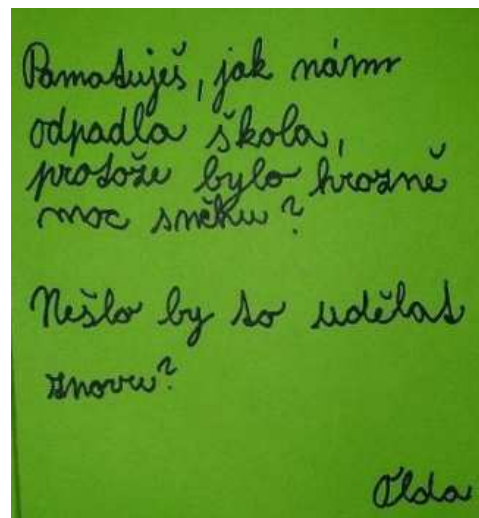 Pamatuješ, jak nám
odpadla škola,
protože bylo hrozně
moc sněhu?
Nešlo by to udělat
znovu?
Olda